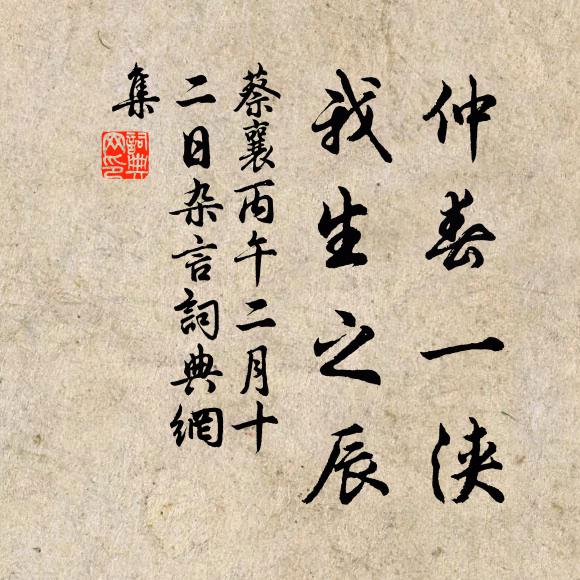 仲春一浹
我生之辰
蔡襄丙午二月十
二日杂言詞典網
集
詞典
网印